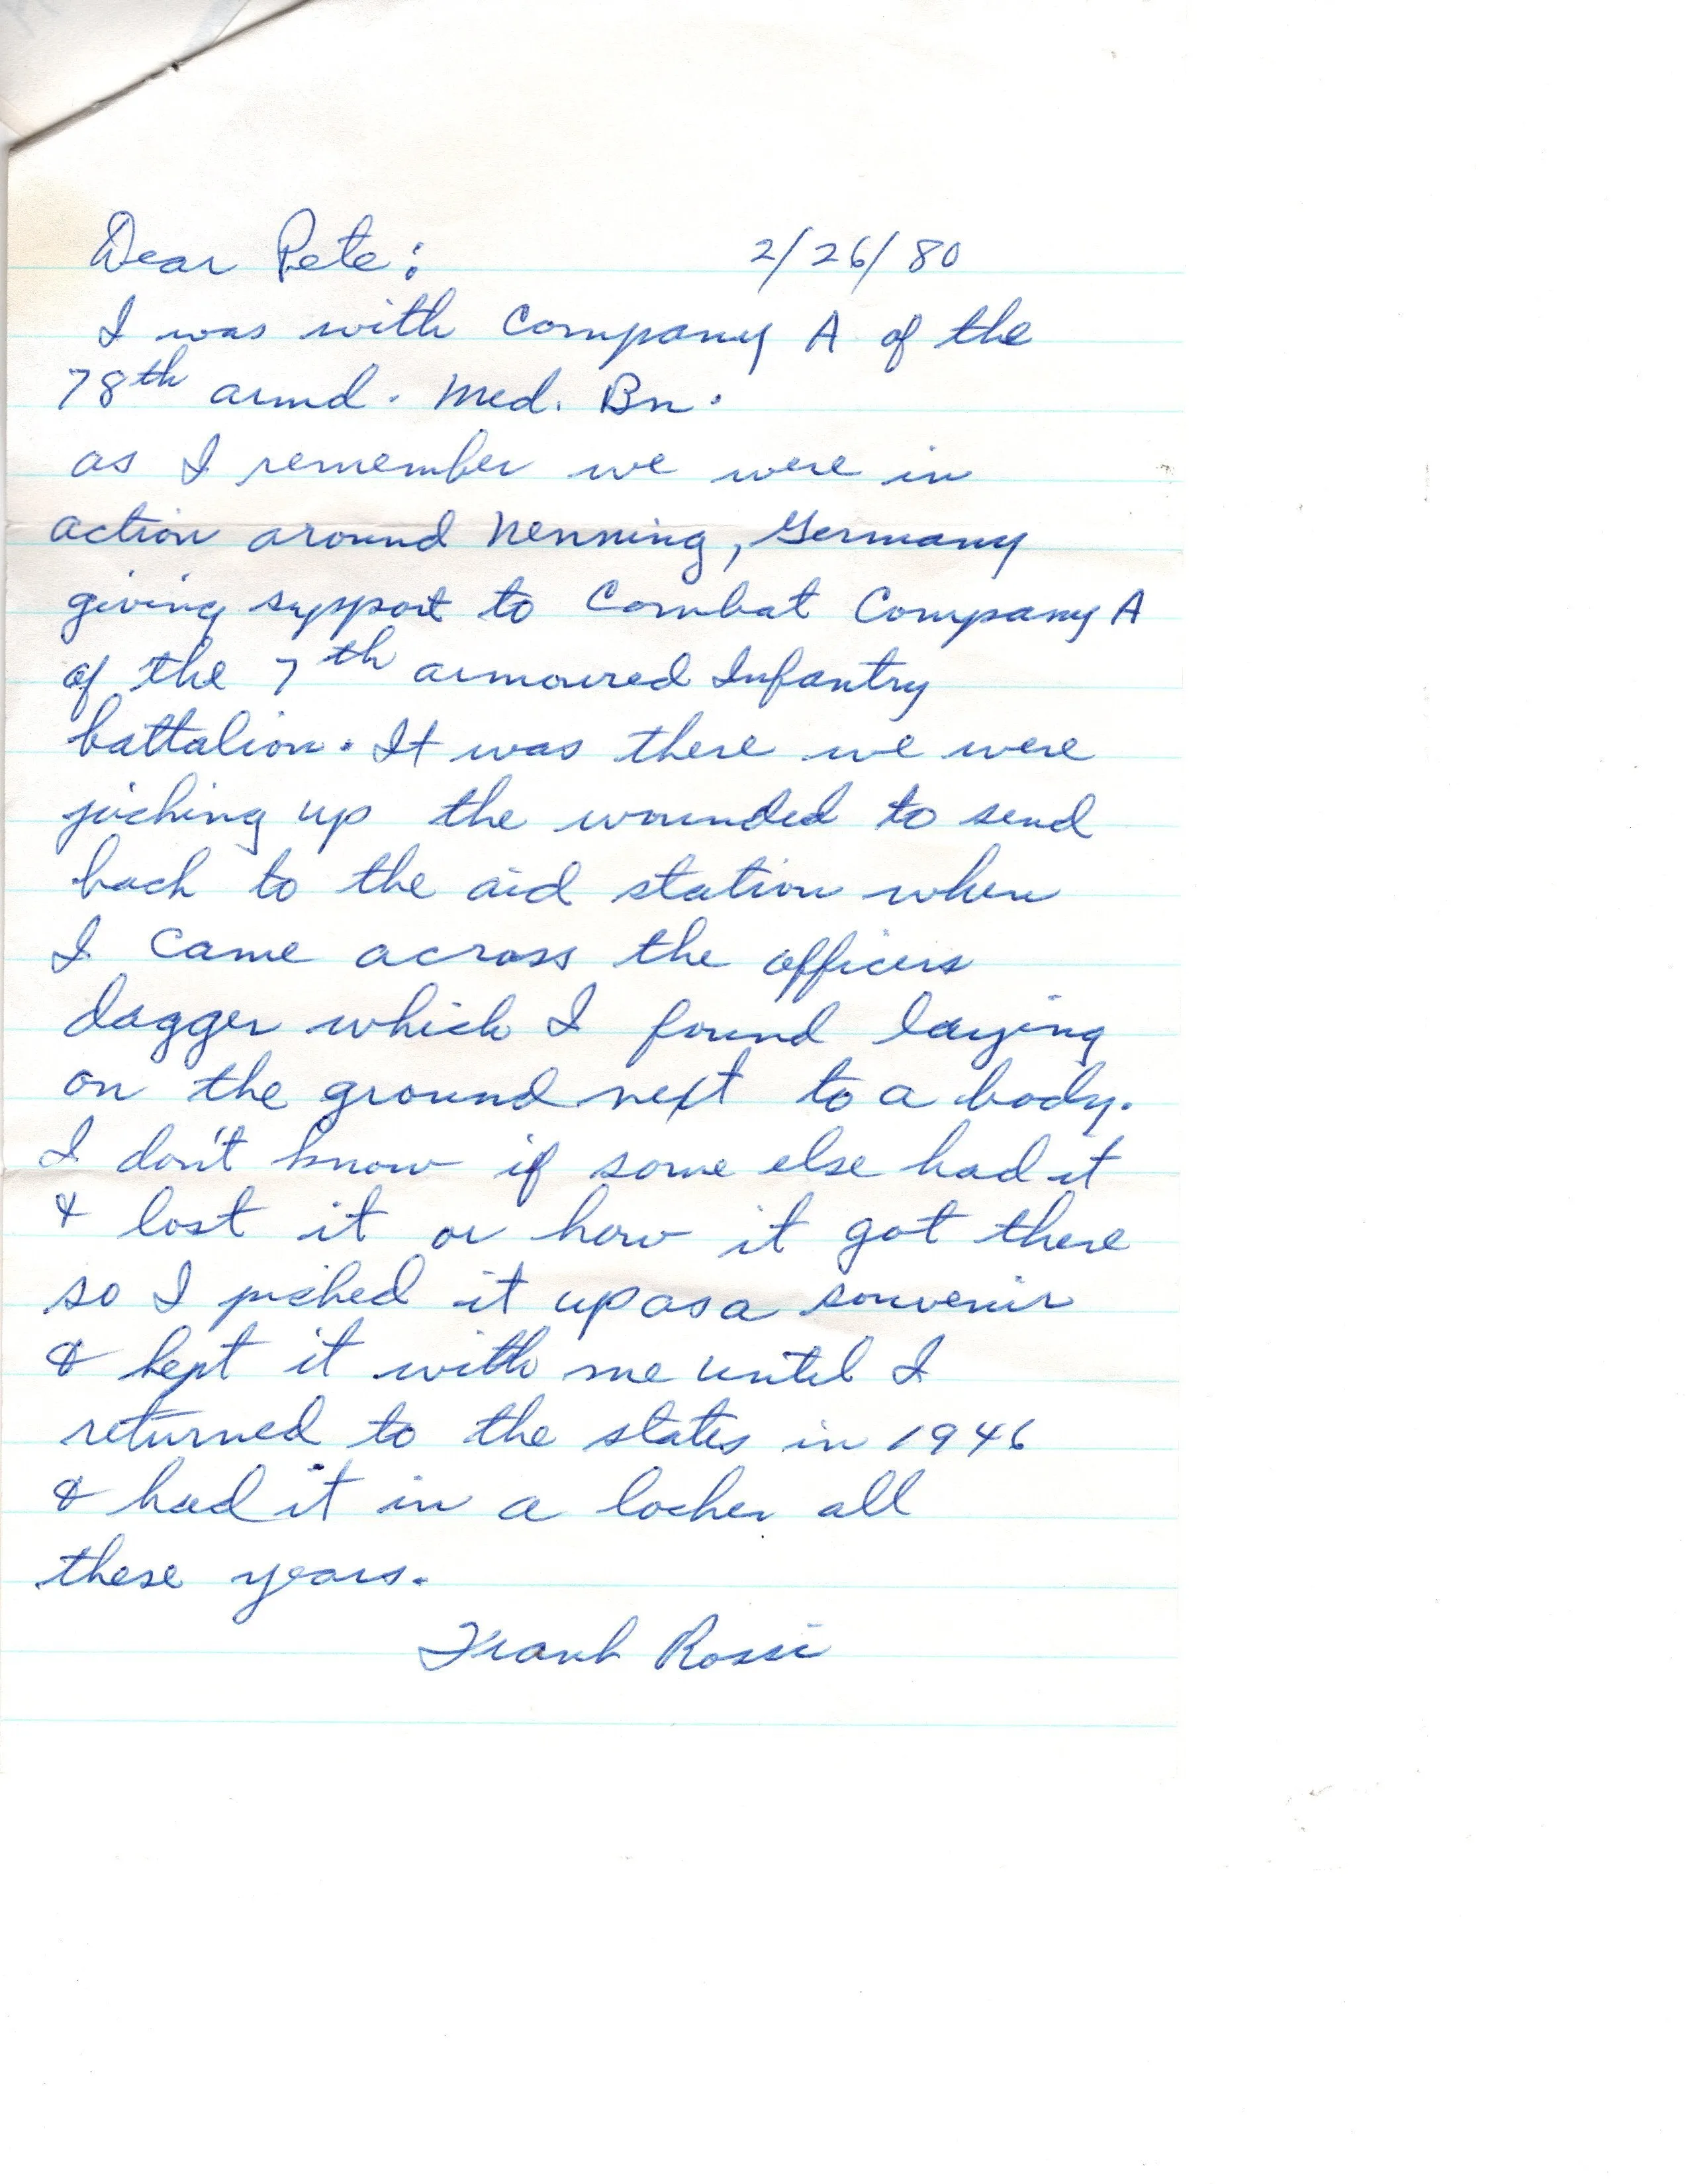 Dear Pete: 2/26/80
I was with Company A of the
78th armd. Med. Bn.
as I remember we were in
action around Nenning, Germany
giving support to Combat Company A
of the 7th armoured Infantry
battalion. It was there we were
picking up the wounded to send
back to the aid station when
I came across the officers
dagger which I found laying
on the ground next to a body.
I don't know if some else had it
& lost it or how it got there
so I picked it up as a souvenir
& kept it with me until I
returned to the states in 1946
& had it in a locker all
these years.
Frank Rossi